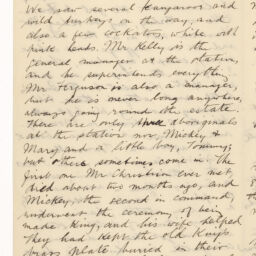 We saw several kangaroos and
wild turkeys on the way, and
also a few cockatoos, white with
pink heads. Mr Kelly is the
general manager at the station,
and he superintends everything
Mr Ferguson is also a manager,
but he is never long anywhere,
always going round the estate.
There are only three aboriginals
at the station now, Mickey &
Mary and a little boy, Tommy;
but others sometimes come in. The
first one Mr Christian ever met
died about two months ago, and
Mickey, the second in command,
underwent the ceremony of being
made King, and his wife helped
They had kept the old King's
brass plate buried in their